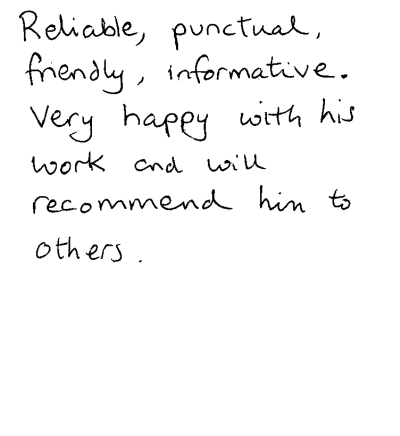 Reliable, punctual,
friendly, informative.
Very happy with his
work and will
recommend him to
others.